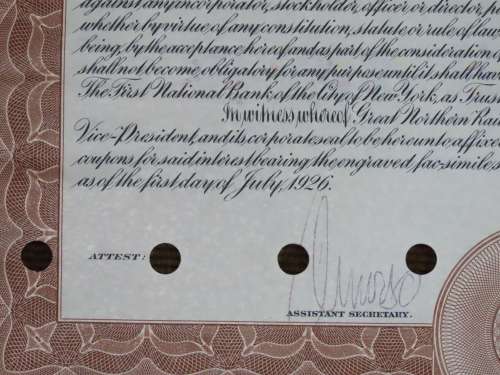 against any incorporator, stockholder, officer or director,
whether by virtue of any constitution, statute or rule of law
being, by the acceptance hereof and as part of the consideration
shall not become obligatory for any purpose until it shall have
The First National Bank of the City of New York, as Trus
In witness whereof, Great Northern Rai
Vice-President, and its corporate seal to be hereunto affixe
coupons for said interest bearing the engraved fac-simile s
as of the first day of July, 1926.
ATTEST:
ASSISTANT SECRETARY.